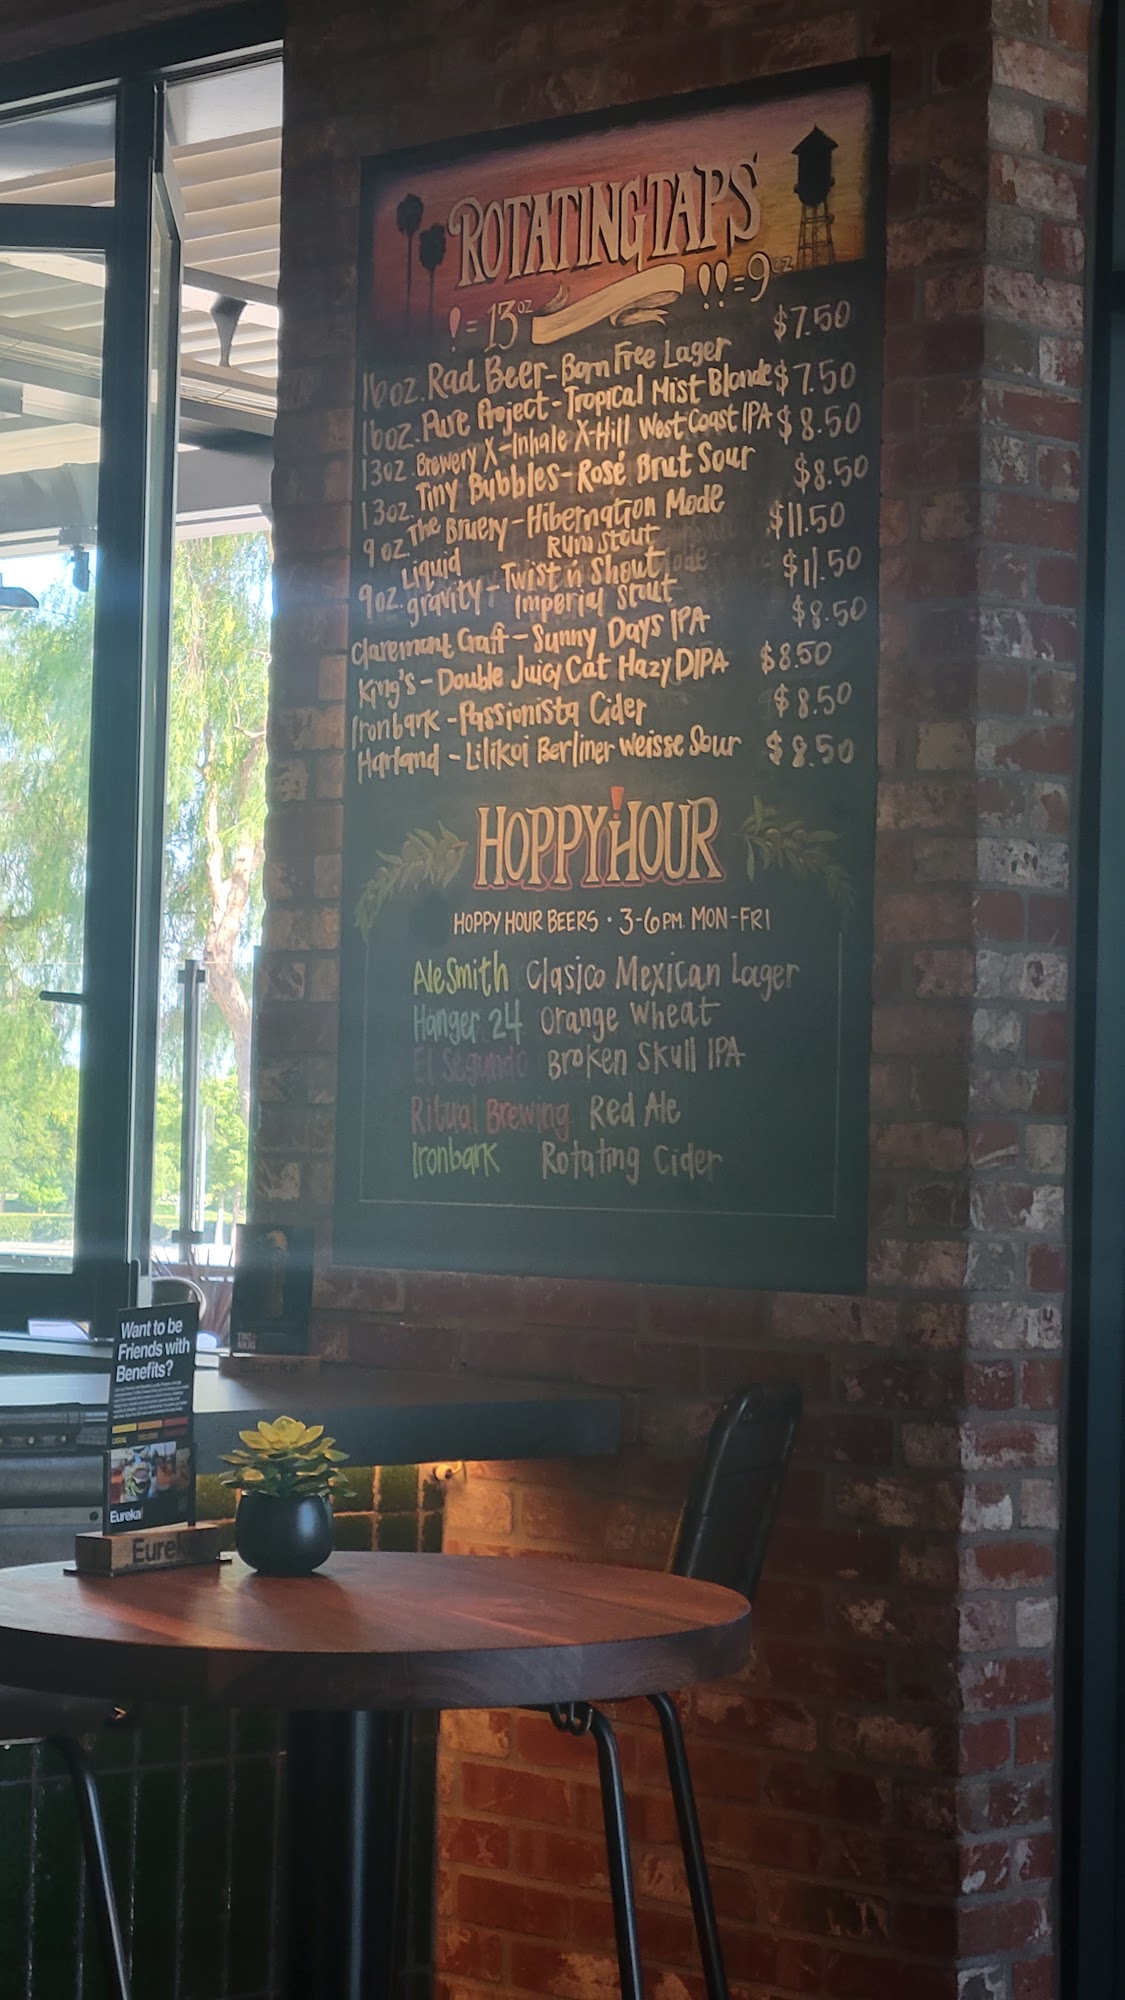 ROTATING TAPS
! = 13oz !! = 9oz
16oz. Rad Beer - Born Free Lager $7.50
16oz. Pure Project - Tropical Mist Blonde $7.50
13oz. Brewery X - Inhale X-Hill West Coast IPA $8.50
13oz. Tiny Bubbles - Rosé Brut Sour $8.50
9oz. The Bruery - Hibernation Mode $11.50
Rum Stout
9oz. Liquid gravity - Twist n' Shout $11.50
Imperial Stout
Claremont Craft - Sunny Days IPA $8.50
King's - Double Juicy Cat Hazy DIPA $8.50
Ironbark - Passionista Cider $8.50
Harland - Lilikoi Berliner Weisse Sour $8.50
HOPPY HOUR
HOPPY HOUR BEERS · 3-6PM. MON-FRI
AleSmith Clasico Mexican Lager
Hanger 24 Orange Wheat
El Segundo Broken Skull IPA
Ritual Brewing Red Ale
Ironbark Rotating Cider
Want to be
Friends with
Benefits?
Eureka!
Eurek